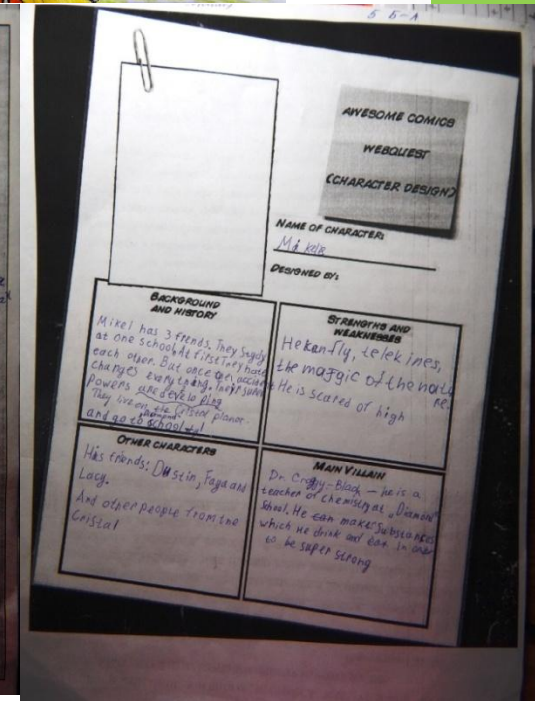 5 Б-А
AWESOME COMICS
WEBQUEST
(CHARACTER DESIGN)
NAME OF CHARACTER:
Mikele
DESIGNED BY:
BACKGROUND
AND HISTORY
Mikel has 3 frends. They
at one school. At first They hate
each other. But once accident
changes everything. They
powers are developing
They live on the Cristal planet.
and go to school
STRENGTHS AND
WEAKNESSES
He kan fly, telekines,
the maggic of the
He is scared of high
OTHER CHARACTERS
His friends: Dustin, Faya and
Lacy.
And other people from the
Cristal
MAIN VILLAIN
Dr. Black – he is a
teacher of chemistry at „Diamond"
school. He makes substances
which He drink and eat in order
to be super strong